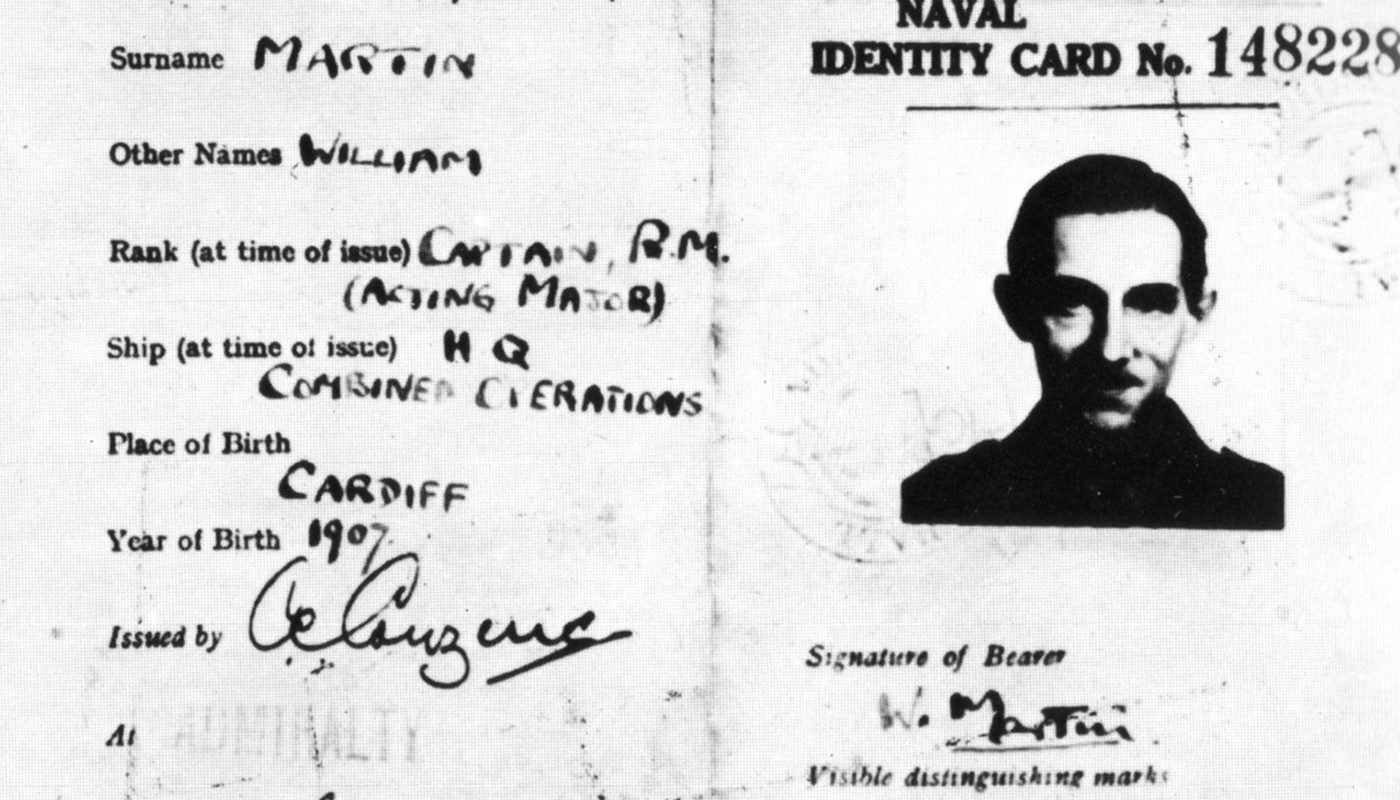 Surname MARTIN
Other Names WILLIAM
Rank (at time of issue) CAPTAIN, R.M.
(ACTING MAJOR)
Ship (at time of issue) H Q
COMBINED OPERATIONS
Place of Birth
CARDIFF
Year of Birth 1907
Issued by
At ADMIRALTY
NAVAL
IDENTITY CARD No. 148228
Signature of Bearer
W. Martin
Visible distinguishing marks